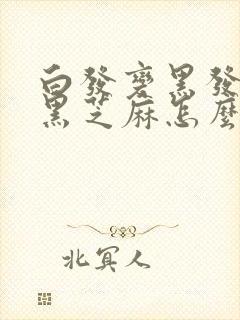 白發變黑發
黑芝麻怎麼
北冥人